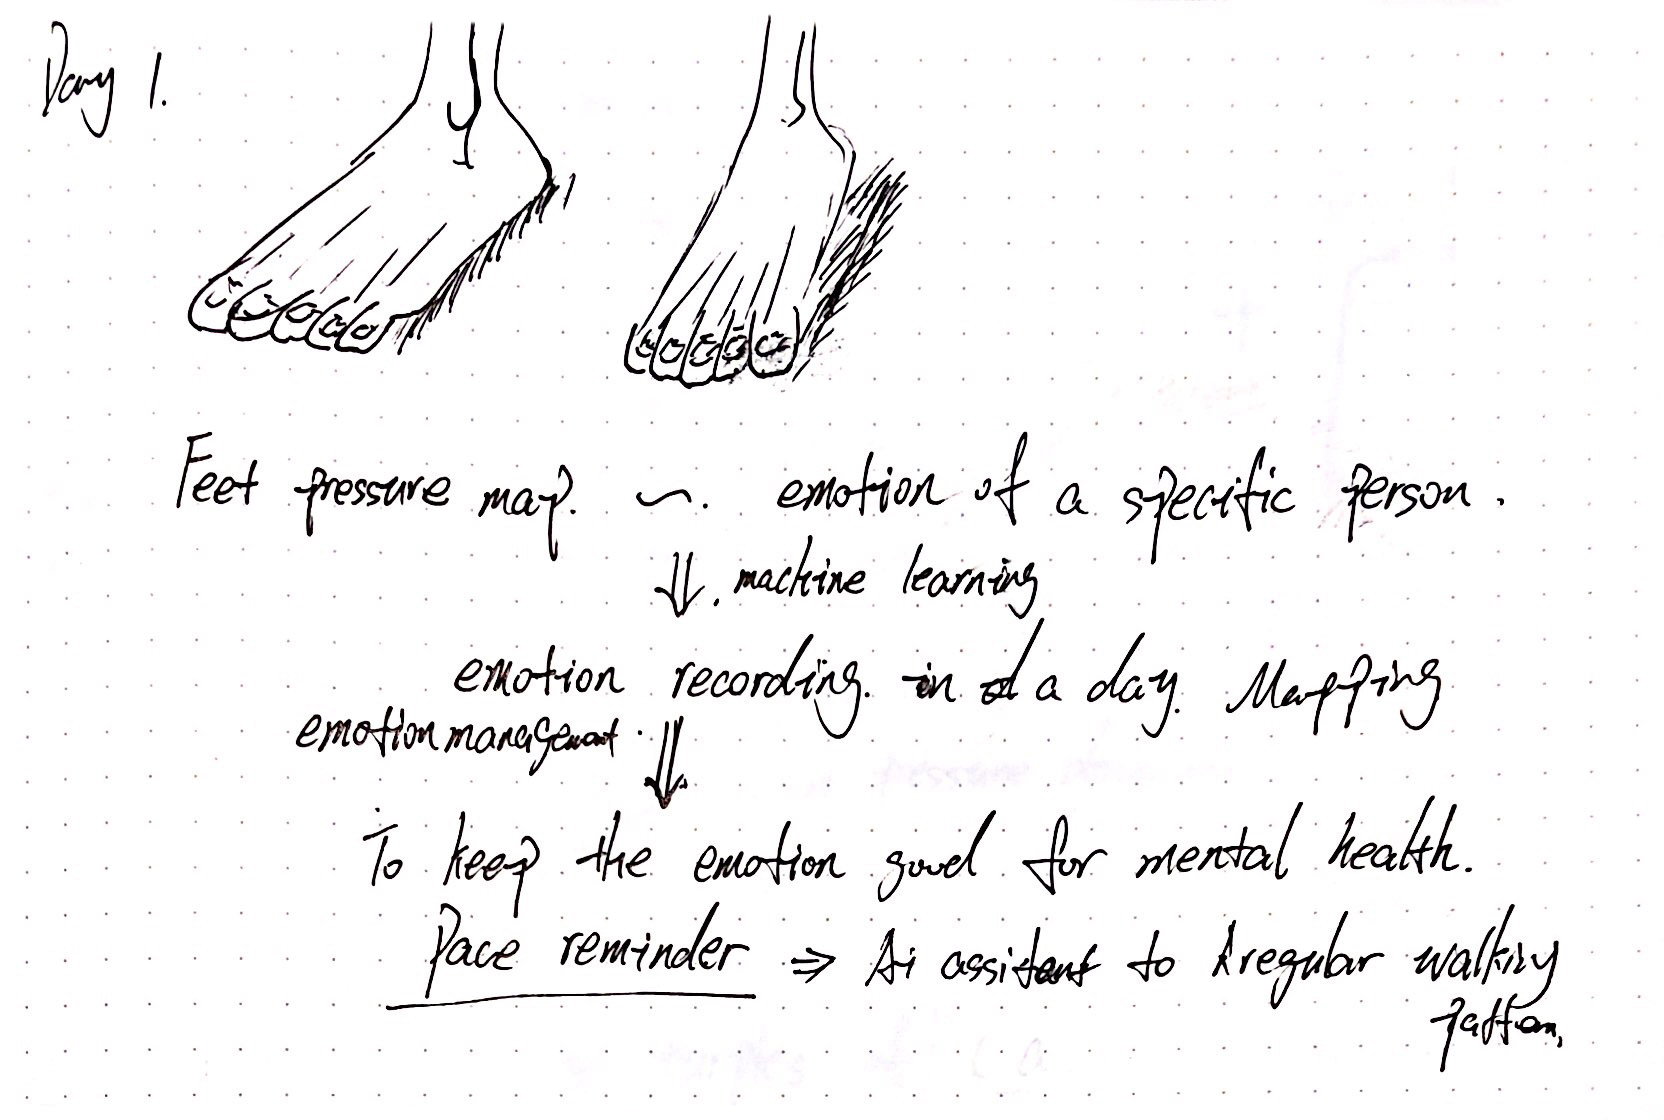 Day 1.
Feet pressure map. ~. emotion of a specific person.
⇓. machine learning
emotion recording. in a day. Mapping
emotion management. ⇓
To keep the emotion good for mental health.
Pace reminder ⇒ Ai assitent to irregular walking
pattern.